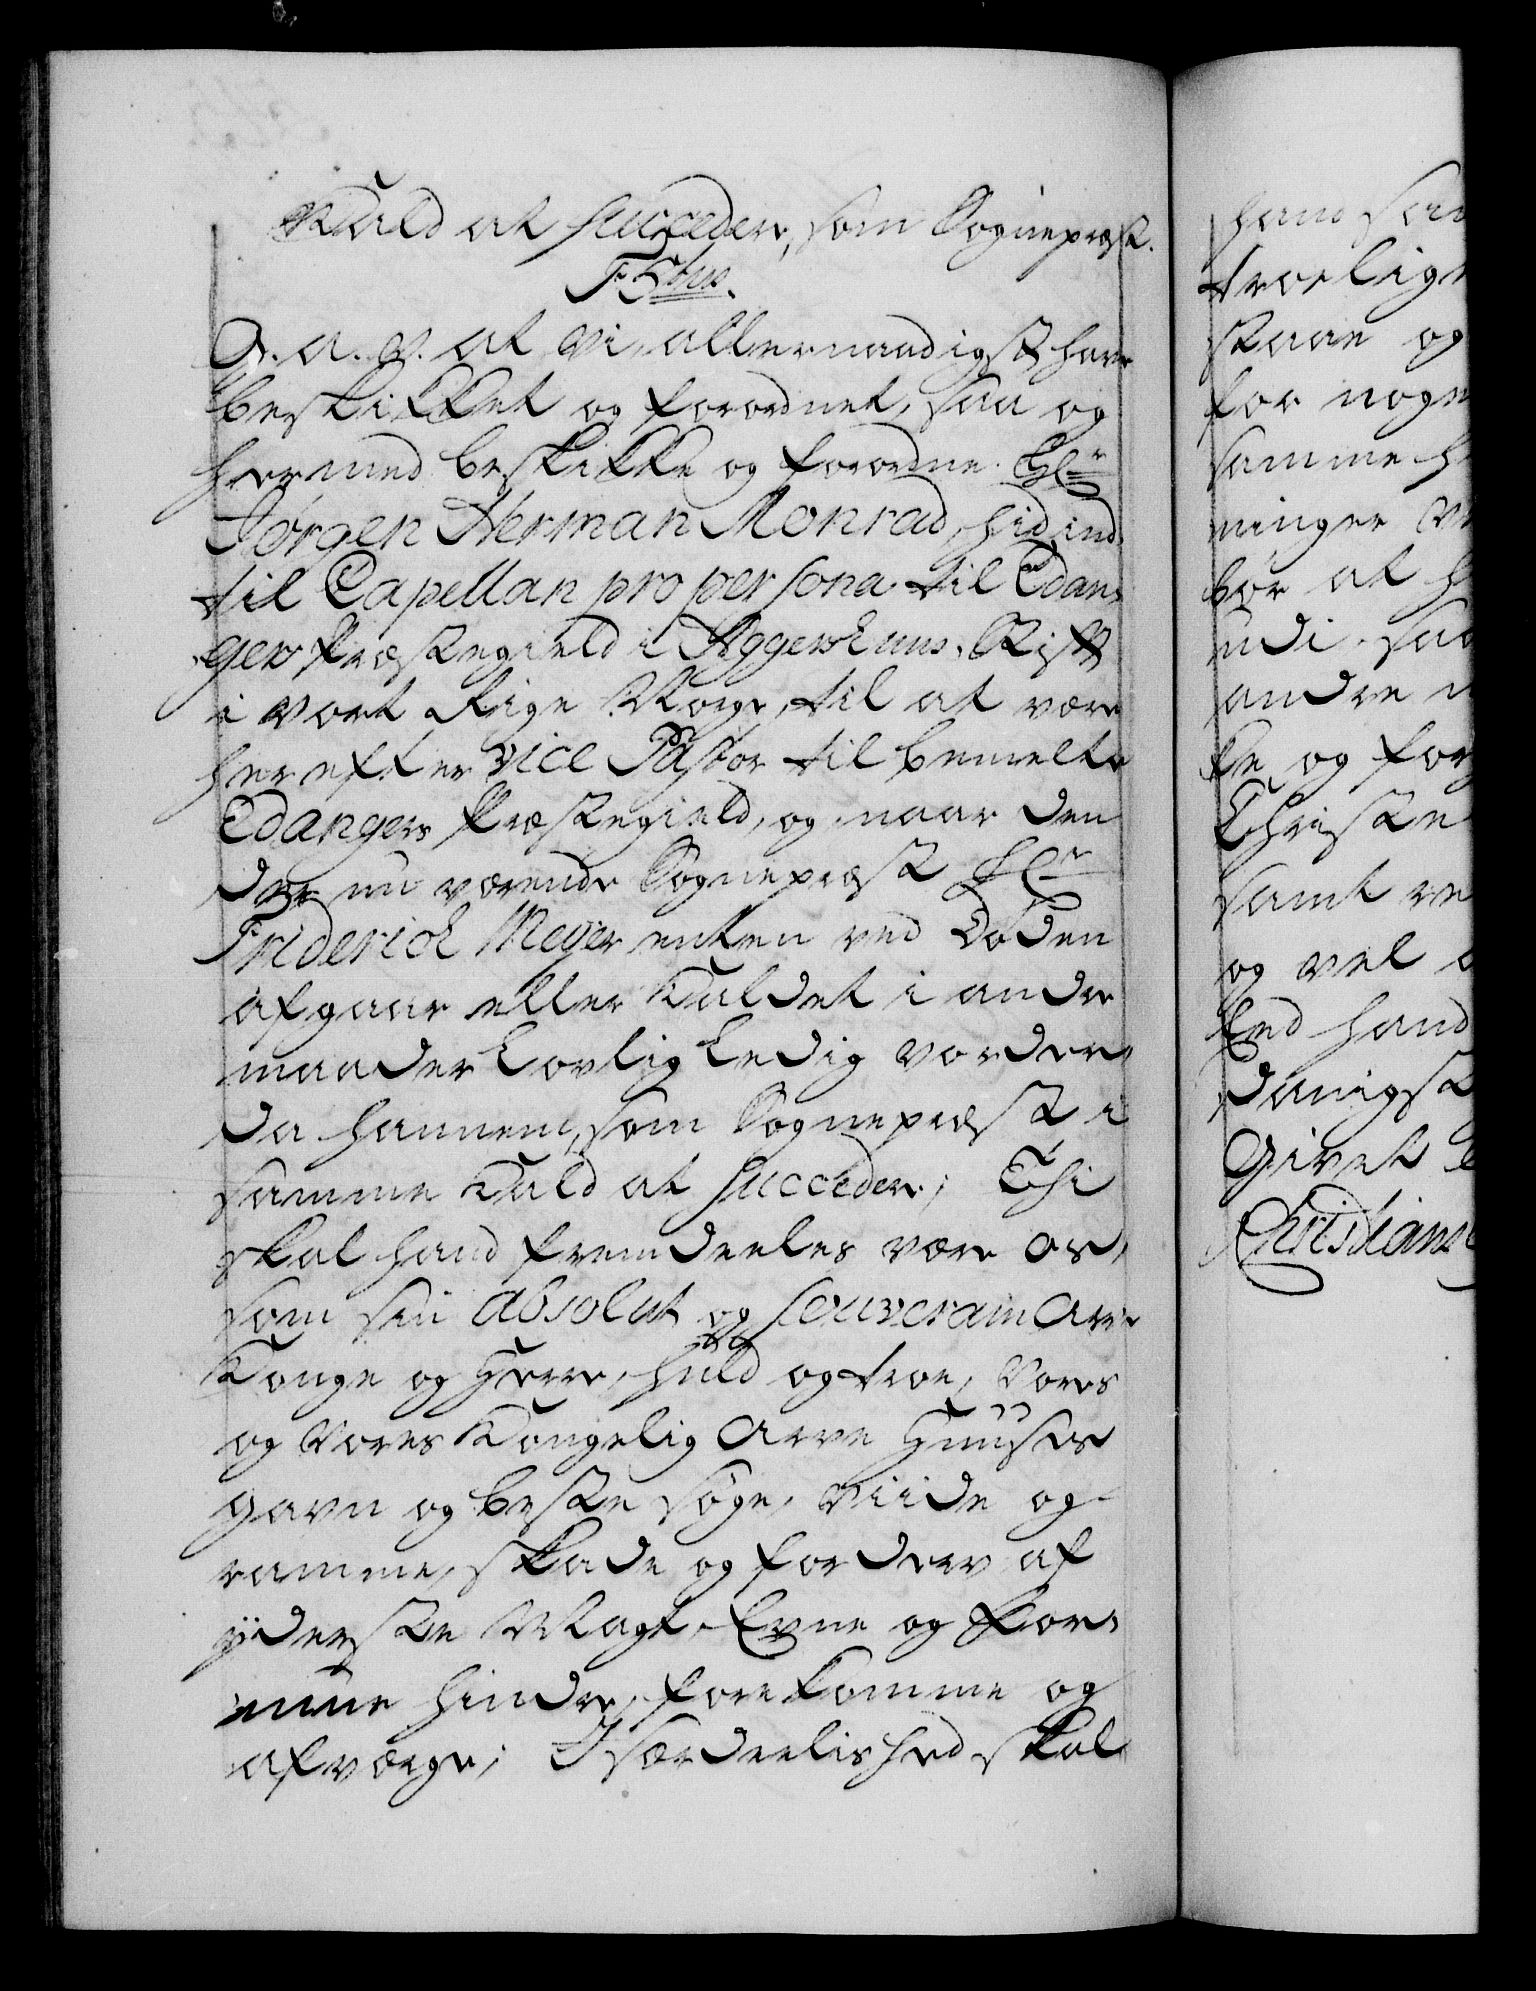 Kald at succedere, som Sognepræst.
F 5tus.
G. A. V. at Vi allernaadigst have
beskikket og forordnet, saa og
hermed beskikke og forordne Hr
Jørgen Herman Monrad, hid ind-
til Capellan pro persona til Edan-
gers Præstegield i Aggershuus Stift
i vort Rige Norge, til at være
herefter vice Pastor til bemelte
Edangers Præstegield, og naar den
der nu værende Sognepræst Hr
Friderich Meyer enten ved Døden
afgaar eller Kaldet i andre
maader Lovlig Ledig vorder,
da hannem, som Sognepræst i
samme Kald at succedere; Thi
skal hand fremdeeles være os,
som sin absolut og souverain Arve
Konge og Herre, huld og troe, Vores
og Vores Kongelig Arve Huuses
gavn og beste søge, viide og
ramme, skade og forderv af
yderste Magt, Evne og For-
mue hindre, forekomme og
afværge; Isærdeelished skal
hand saa
troelig
staae og
for nogen
samme h
ninger V
bør at h
udi saa
andre
ke og for
Christe
samt re
og vel
Eed hand
danigst
Givet
Christians